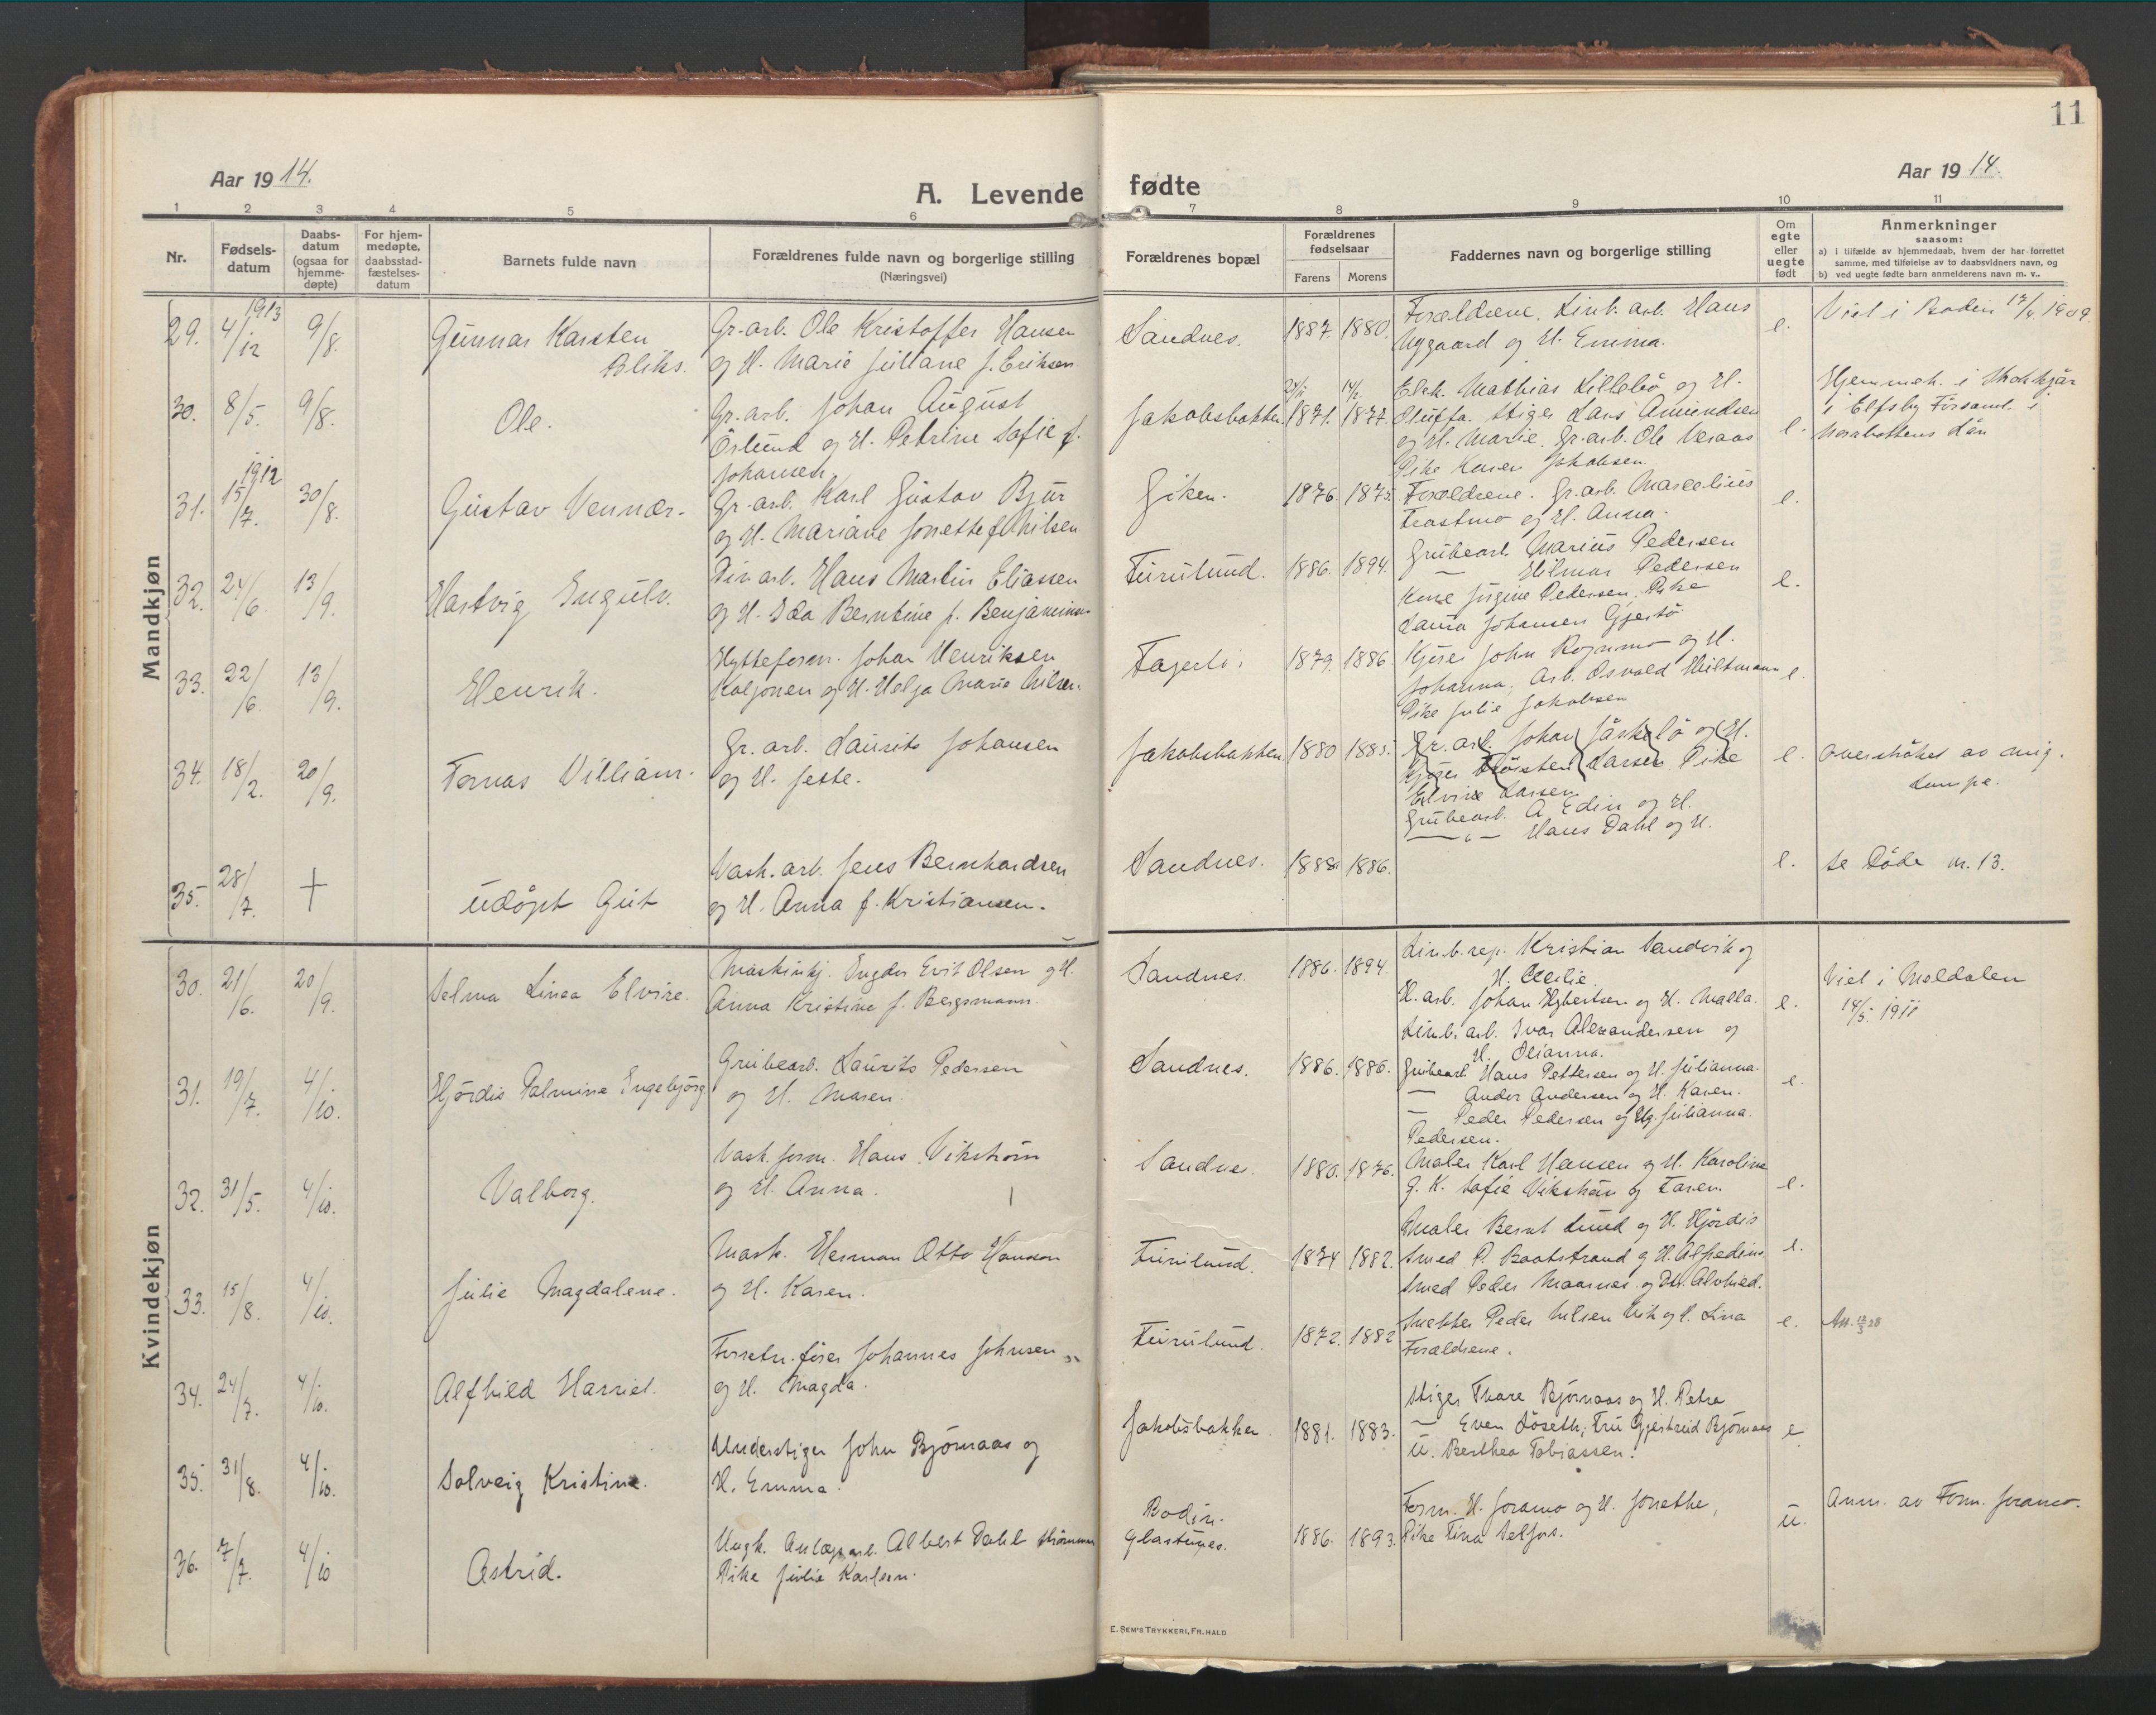 11
Aar 1914.
A. Levende fødte
Aar 1914.
1 2 3 4 5 6 7 8 9 10 11
Nr.
Fødsels-
datum
Daabs-
datum
(ogsaa for
hjemme-
døpte)
For hjem-
medøpte,
daabsstad-
fæstelses-
datum
Barnets fulde navn
Forældrenes fulde navn og borgerlige stilling
(Næringsvei)
Forældrenes bopæl
Forældrenes
fødselsaar
Farens Morens
Faddernes navn og borgerlige stilling
Om
egte
eller
uegte
født
Anmerkninger
saasom:
a) i tilfælde av hjemmedaab, hvem der har forrettet
samme, med tilføielse av to daabsvidners navn, og
b) ved uegte fødte barn anmelderens navn m. v..
Mandkjøn
1913
29. 4/12 9/8.
Gunnar Karsten
Bliks.
Gr. arb. Ole Kristoffer Hansen
og H. Marie Juliane f. Eriksen
Sandnes. 1887. 1880.
Forældrene. Linb. arb. Hans
Nygaard og H. Emma.
e.
Viet i Bodin 1909.
30. 8/5. 9/8.
Ole.
Gr. arb. Johan August
Örlund og H. Petrine Sofie f.
Johansen.
Jakobsbakken. 1871. 1877.
Elek. Mathias Lillebö og H.
Olufta. Stiger Lars Amundsen
og H. Marie. Gr. arb. Ole Veraas
Pike Karen Jakobsen.
e.
Hjemmeh. i
i Elfsby Församl. i
Norrbottens Län
1912
31. 15/7. 30/8.
Gustav Vennær.
Gr. arb. Karl Gustav Bjur
og H. Mariane Jonette f. Nilsen
Giken. 1876. 1875.
Forældrene. Gr. arb. Marcelius
Trastmo og H. Anna.
e.
32. 24/6. 13/9.
Hartvig Ingulv.
arb. Hans Martin Eliassen
og H. Ida Berntine f. Benjamins.
Furulund. 1886. 1894.
Grubearb. Marius Pedersen
— Hilmar Pedersen
Kone Jørgine Pedersen. Pike
Laura Johansen Gjestø.
e.
33. 22/6. 13/9.
Henrik.
Hytteform. Johan Henriksen
Koljonen og H. Helga Marie Nilsen.
Fagerli. 1879. 1886.
Kjører John Rognmo og H.
Johanna, Arb. Osvald Hultmann
Pike Julie Jakobsen
e.
34. 18/2. 20/9.
Tomas Villiam.
Gr. arb. Laurits Johansen
og H. Jette.
Jakobsbakken. 1880 1885.
Gr. arb. Johan og H.
Kjører Larsen Pike
Elvine Larsen
Grubearb. A Edin og H.
— " — Hans Dahl og H.
e.
Overstrøket av mig.
Lampe.
35. 28/7. †
Udøpt Gut
Vask. arb. Jens Bernhardsen
og H. Anna f. Kristiansen.
Sandnes. 1888. 1886.
e.
Se Døde nr. 13.
Kvindekjøn
30. 21/6. 20/9.
Selma Linea Elvire.
Maskinkj. Engder Evit Olsen og H.
Anna Kristine f. Bergsmann.
Sandnes. 1886. 1894.
Linb. rep. Kristian Sandvik og
H. Cecilie.
H. arb. Johan Hybertsen og H. Malla.
Linb. arb. Ivar Alexandersen og
H. Olianna.
e.
Viet i Meldalen
14/5. 1911
31. 19/7. 4/10.
Hjördis Palmine Engebjörg
Grubearb. Laurits Pedersen
og H. Maren.
Sandnes. 1886. 1886.
Grubearb. Hans Pettersen og H. Julianna.
— Ander Andersen og H. Karen.
— Peder Pedersen og Ug. Julianna
Pedersen.
e.
32. 31/5. 4/10.
Valborg.
Vask. form. Hans Vikström
og H. Anna.
Sandnes. 1880. 1876.
Maler Karl Hansen og H. Karoline
G. K. Sofie Vikström og Faren.
e.
33. 15/8. 4/10.
Julie Magdalene.
Mask. Herman Otto Hansen
og H. Karen.
Furulund. 1874 1882.
Maler Bernt Lund og H. Hjördis
Smed P. Baatstrand og H. Alfredine
Smed Peder Maarnes. og H. Alvhed.
e.
34. 24/7. 4/10.
Alfhild Harriet.
Forretn. fører Johannes Johnsen
og H. Magda.
Furulund. 1872. 1882
Snekker Peder Nilsen Vik og H. Lina
Forældrene.
e.
Att. 28
35. 31/8. 4/10.
Solveig Kristine.
Understiger John Bjørnaas og
H. Emma.
Jakobsbakken. 1881. 1883.
Stiger Thore Bjørnaas og H. Petra
— Even Løseth; Fru Gjertrud Bjørnaas
U. Berthea Tobiassen.
e
36. 7/7. 4/10
Astrid.
Ungk. Anlægsarb. Albert Dahl
Pike Julie Karlsen.
Bodin.
1886. 1893.
Form. H. Joramo og H. Jonethe,
Pike Tina Selfors.
u.
Anm. av Form. Joramo.
E. SEM'S TRYKKERI, FR. HALD